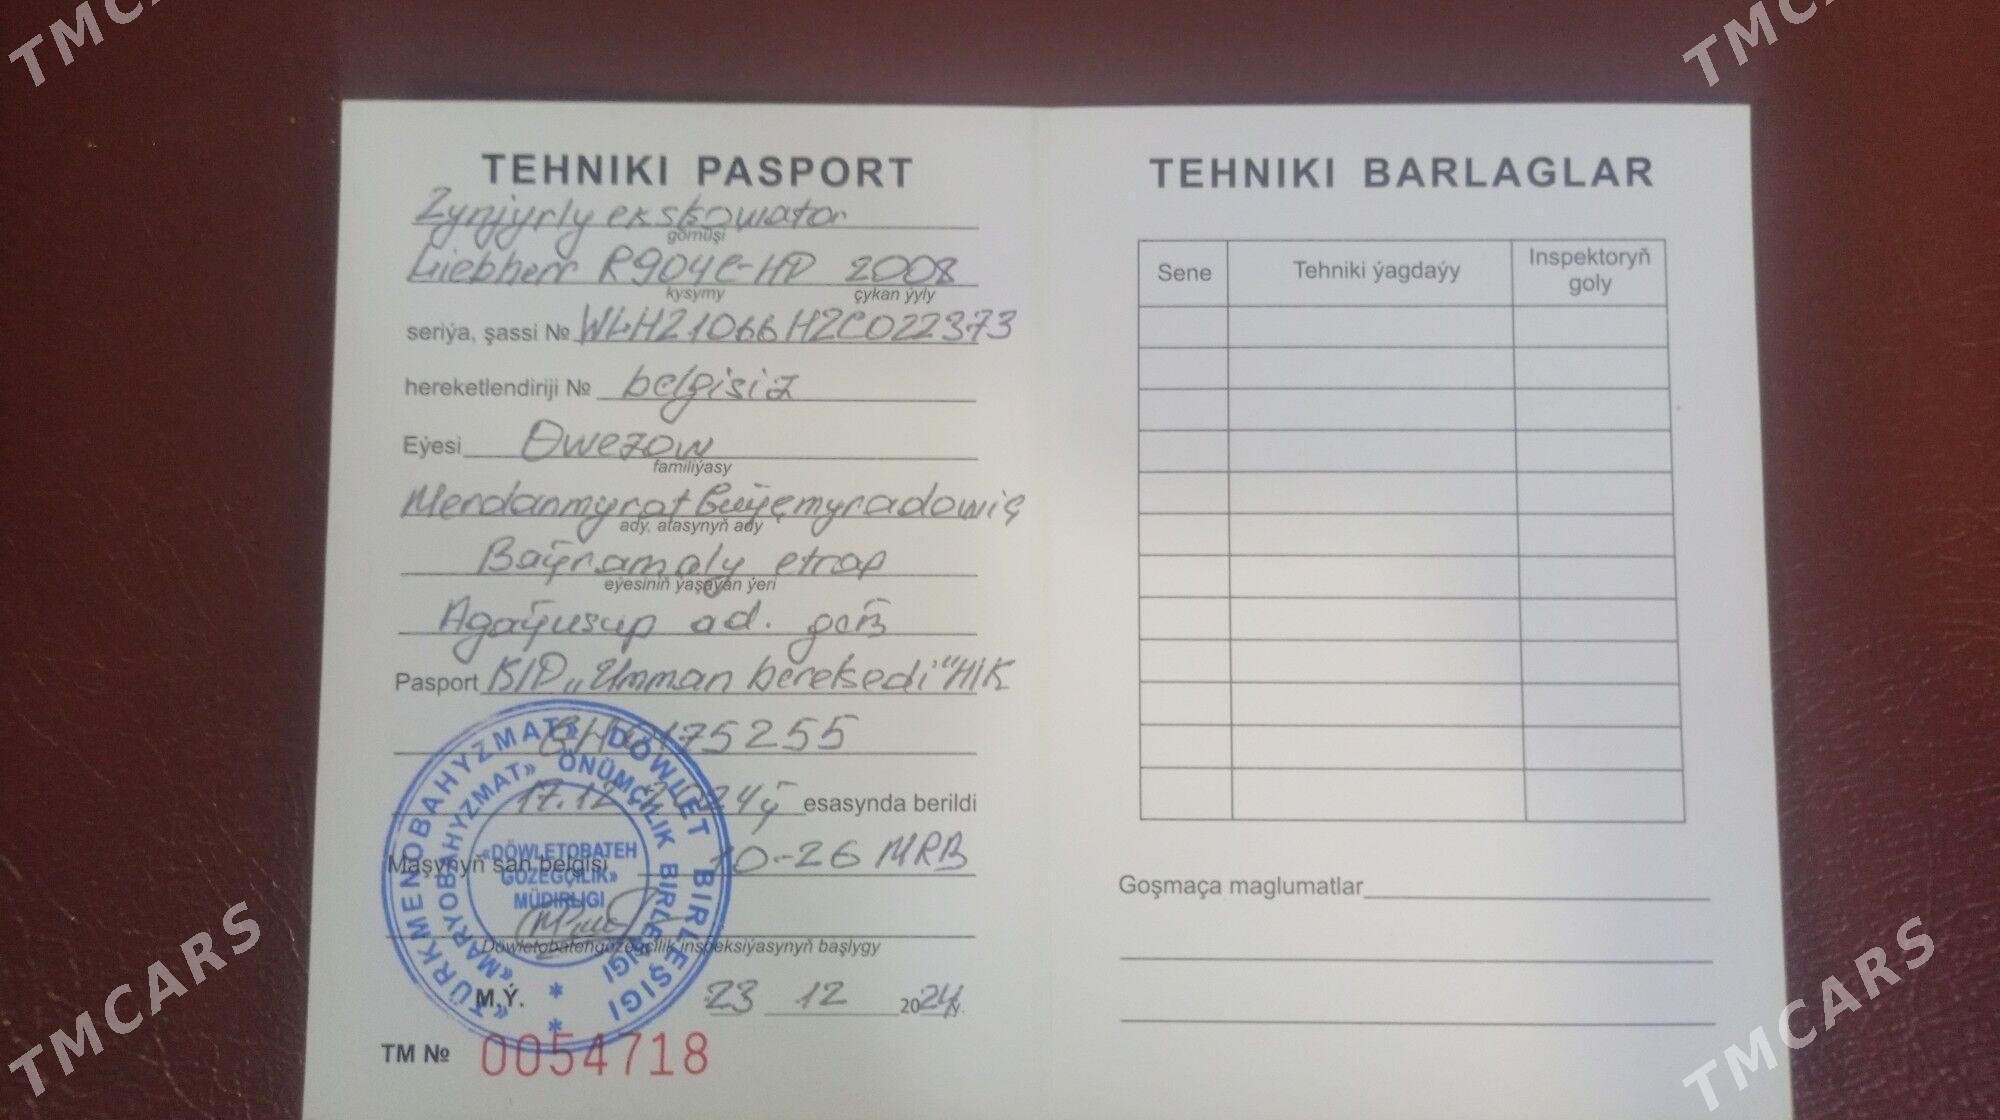 TMCARS
TMCARS
TEHNIKI PASPORT
Zynjyrly ekskowator
görnüşi
Liebherr R904C-HD 2008
kysymy çykan ýyly
seriýa, şassi № WLHZ1066HZC022373
hereketlendiriji № belgisiz
Eýesi Öwezow
familiýasy
Merdanmyrat Guýçmyradowiç
ady, atasynyň ady
Baýramaly etrap
eýesiniň ýaşaýan ýeri
Agaýusup ad. geň
Pasport "Umman bereketli" HK
175255
17.12.2024ý esasynda berildi
Maşynyň san belgisi 10-26 MRB
Döwletobatehgözegçilik inspeksiýasynyň başlygy
M.Ý. 23 12 2024ý.
TM № 0054718
«TÜRKMENOBAHYZMAT» DÖWLET BIRLEŞIGI
«MARYOBAHYZMAT» ÖNÜMÇILIK BIRLEŞIGI
«DÖWLETOBATEH
GÖZEGÇILIK»
MÜDIRLIGI
TEHNIKI BARLAGLAR
Sene Tehniki ýagdaýy Inspektoryň goly
Goşmaça maglumatlar
TMCARS
TMCARS